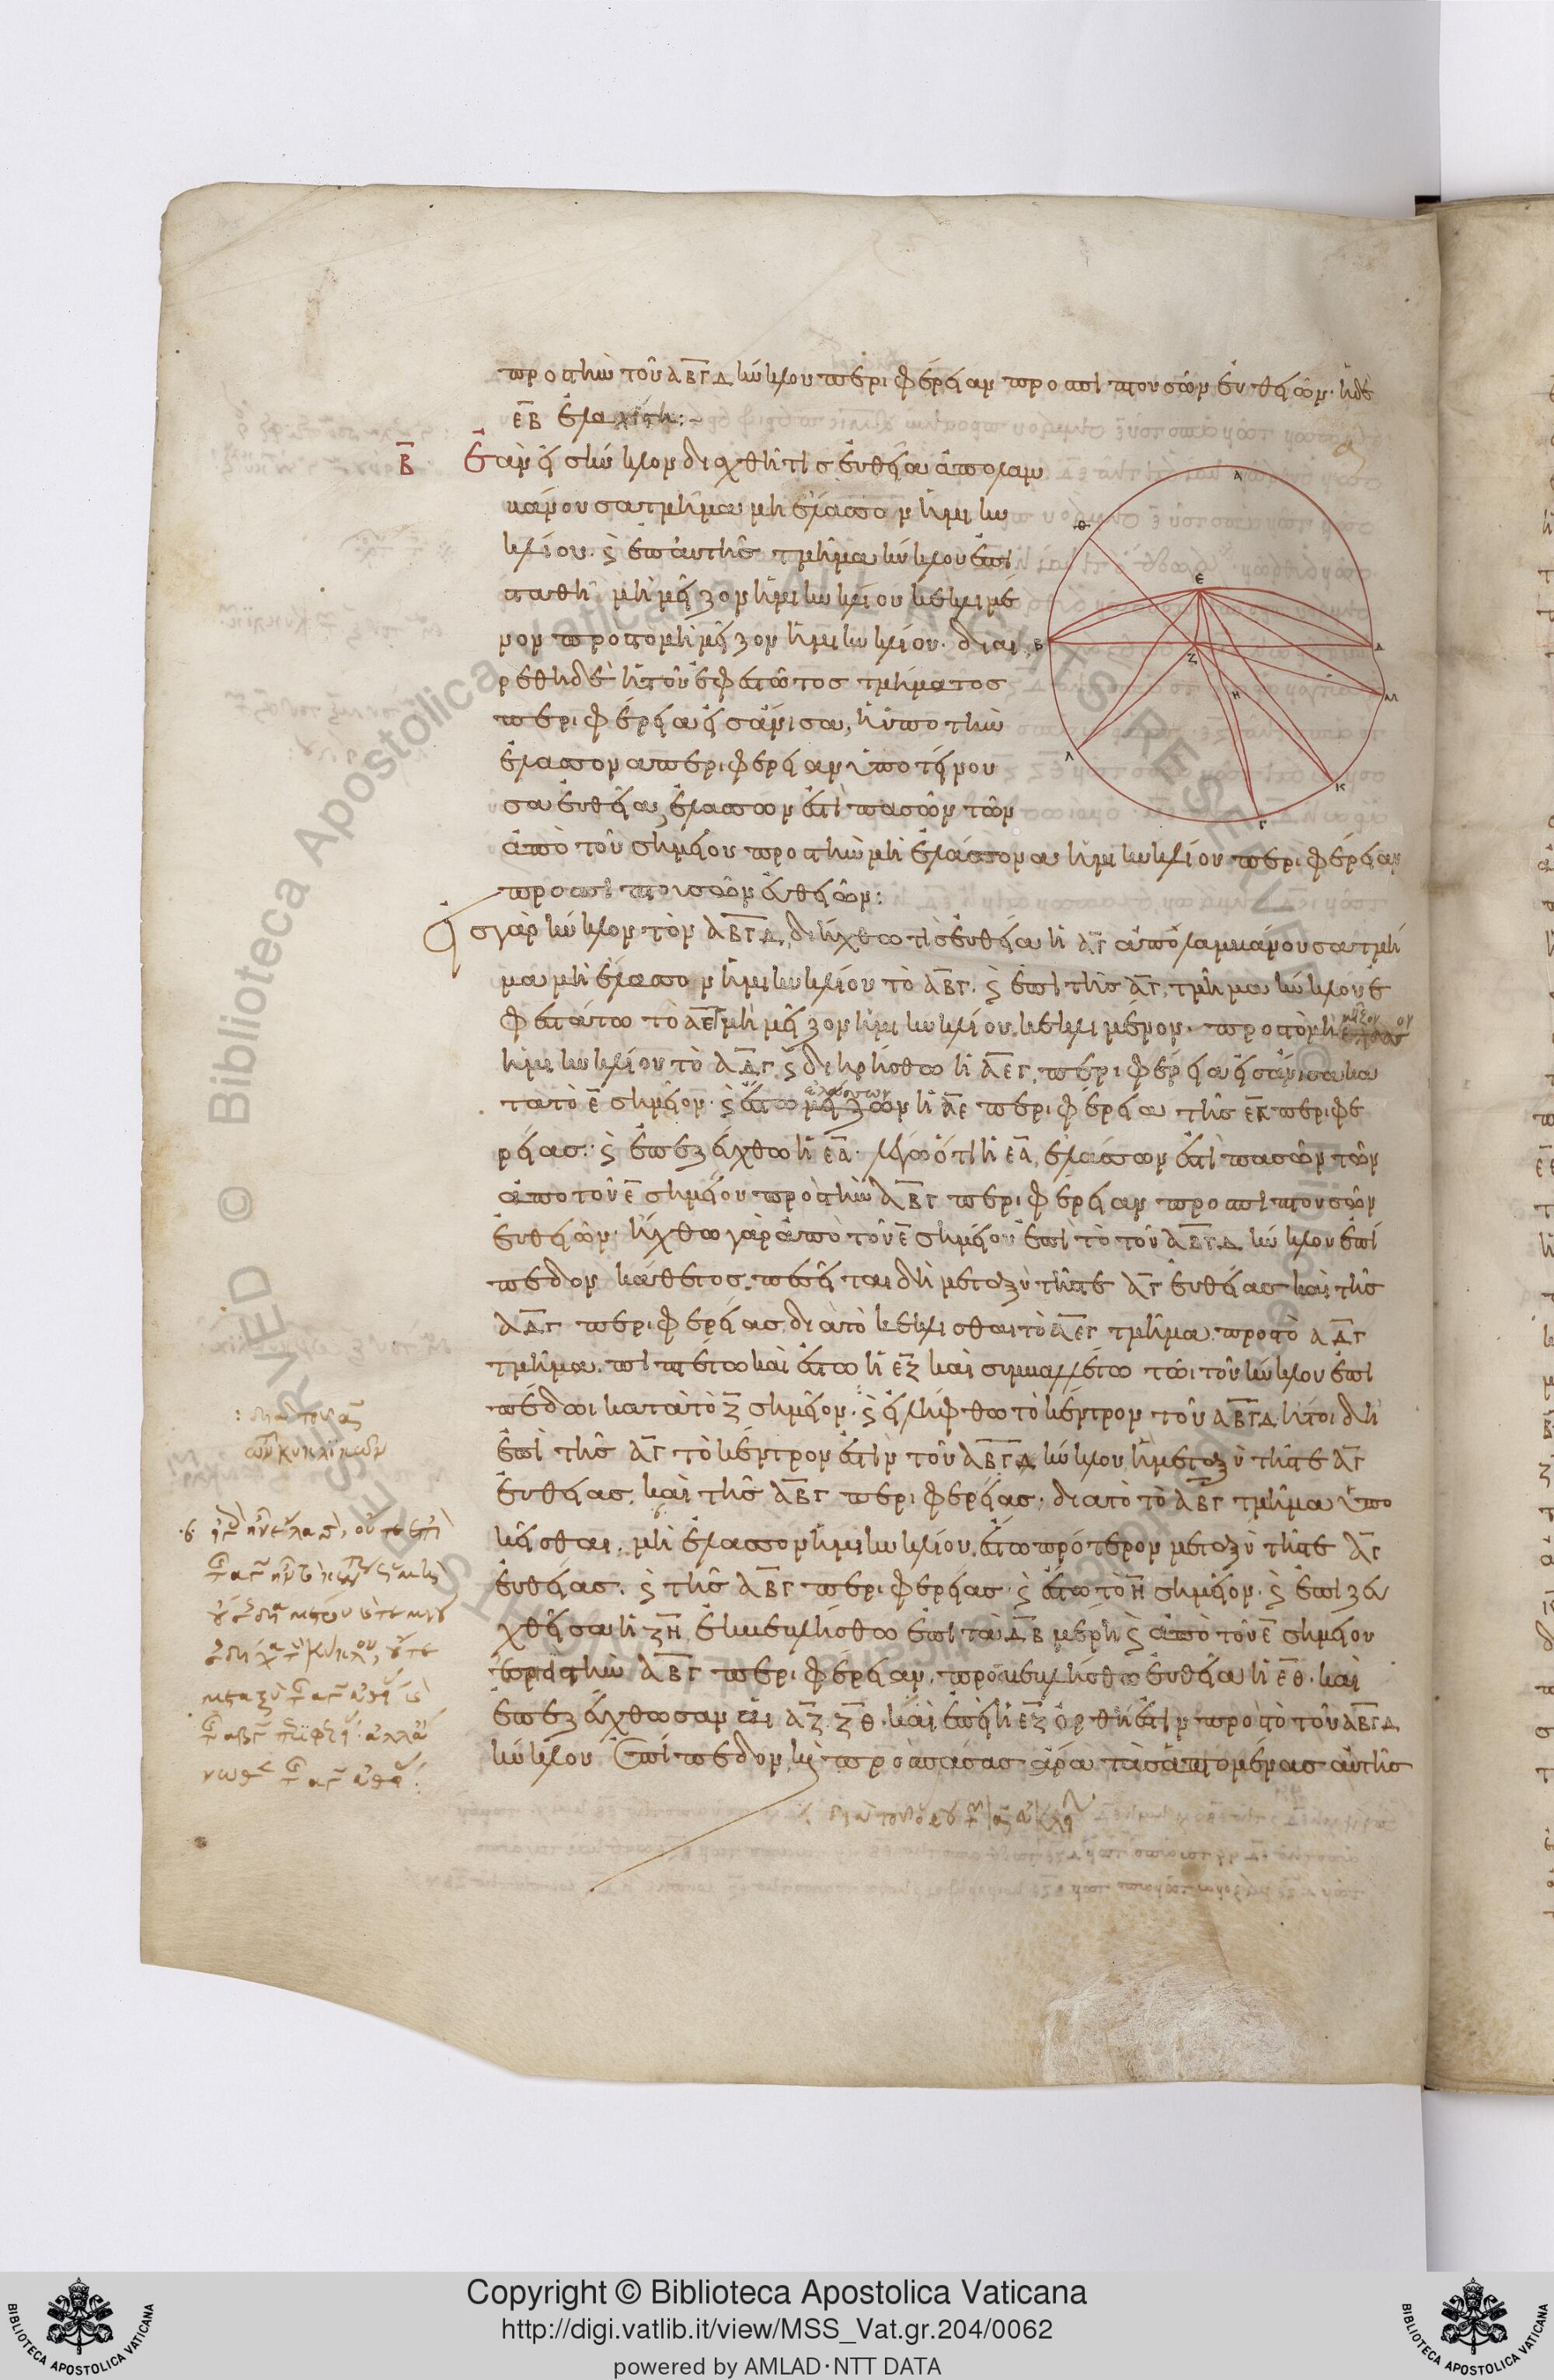 πρὸς τὴν τοῦ ΑΒΓΔ κύκλου περιφέρειαν προσπιπτουσῶν εὐθειῶν· ἡ δὲ
ΕΒ ἐλαχίστη:~
Β Ἐὰν εἰς κύκλον διαχθῆ τις εὐθεῖα ἀπολαμ
βάνουσα τμῆμα μὴ ἔλασσον ἡμικυ
κλίου. καὶ ἐπ' αὐτῆς τμῆμα κύκλου ἐπι
σταθῆ μὴ μεῖζον ἡμικυκλίου κεκλιμέ
νον πρὸς τὸ μὴ μεῖζον ἡμικυκλίου. διαι
ρεθῆ δὲ ἡ τοῦ ἐφεστῶτος τμήματος
περιφέρεια εἰς ἄνισα, ἡ ὑπὸ τὴν
ἐλάσσονα περιφέρειαν ὑποτείνου
σα εὐθεῖα, ἐλάσσων ἐστὶ πασῶν τῶν
ἀπὸ τοῦ σημείου πρὸς τὴν μὴ ἐλάσσονα ἡμικυκλίου περιφέρειαν
προσπιπτουσῶν εὐθειῶν:
Εἰς γὰρ κύκλον τὸν ΑΒΓΔ, διήχθω τὶς εὐθεῖα ἡ ΑΓ ἀπολαμβάνουσα τμῆ
μα μὴ ἔλασσον ἡμικυκλίου τὸ ΑΒΓ. καὶ ἐπὶ τῆς ΑΓ, τμῆμα κύκλου ἐ
φεστάτω τὸ ΑΕΓ μὴ μεῖζον ἡμικυκλίου κεκλιμένον. πρὸς τὸ μὴ μεῖζον
ἡμικυκλίου τὸ ΑΔΓ. καὶ διηρήσθω ἡ ΑΕΓ, περιφέρεια εἰς ἄνισα κα
τὰ τὸ Ε σημεῖον. καὶ ἔστω μείζων ἡ ΑΕ περιφέρεια τῆς ΕΓ περιφε
ρείας. καὶ ἐπεζεύχθω ἡ ΕΑ. λέγω ὅτι ἡ ΕΑ, ἐλάσσων ἐστὶ πασῶν τῶν
ἀπὸ τοῦ Ε σημείου πρὸς τὴν ΑΒΓ περιφέρειαν προσπιπτουσῶν
εὐθειῶν. ἤχθω γὰρ ἀπὸ τοῦ Ε σημείου ἐπὶ τὸ τοῦ ΑΒΓΔ κύκλου ἐπί
πεδον κάθετος. πεσεῖται δὴ μεταξὺ τῆς τε ΑΓ εὐθείας καὶ τῆς
ΑΔΓ περιφερείας διὰ τὸ κεκλίσθαι τὸ ΑΕΓ τμῆμα πρὸς τὸ ΑΔΓ
τμῆμα. πιπτέτω καὶ ἔστω ἡ ΕΖ καὶ συμβαλλέτω τῶι τοῦ κύκλου ἐπι
πέδωι κατὰ τὸ Ζ σημεῖον. καὶ εἰλήφθω τὸ κέντρον τοῦ ΑΒΓΔ. ἤτοι δὴ
ἐπὶ τῆς ΑΓ τὸ κέντρον ἐστὶν τοῦ ΑΒΓΔ κύκλου ἢ μεταξὺ τῆς τε ΑΓ
εὐθείας. καὶ τῆς ΑΒΓ περιφερείας. διὰ τὸ τὸ ΑΒΓ τμῆμα ὑπο
κεῖσθαι μὴ ἔλασσον ἡμικυκλίου. ἔστω πρότερον μεταξὺ τῆς τε ΑΓ
εὐθείας. καὶ τῆς ΑΒΓ περιφερείας. καὶ ἔστω τὸ Η σημεῖον. καὶ ἐπιζευ
χθεῖσα ἡ ΖΗ, ἐκβεβλήσθω ἐπὶ τὰ Δ Β μέρη καὶ ἀπὸ τοῦ Ε σημείου
πρὸς τὴν ΑΒΓ περιφέρειαν. προσβεβλήσθω εὐθεῖα ἡ ΕΘ. καὶ
ἐπεζεύχθωσαν αἱ ΑΖ. ΖΘ. καὶ ἐπεὶ ἡ ΕΖ ὀρθή ἐστιν πρὸς τὸ τοῦ ΑΒΓΔ
κύκλου ἐπίπεδον, καὶ πρὸς πάσας ἄρα τὰς ἁπτομένας αὐτῆς
Α
Θ
Ε
Β
Δ
Ζ
Η
Μ
Λ
Κ
Γ
Copyright © Biblioteca Apostolica Vaticana
http://digi.vatlib.it/view/MSS_Vat.gr.204/0062
powered by AMLAD·NTT DATA